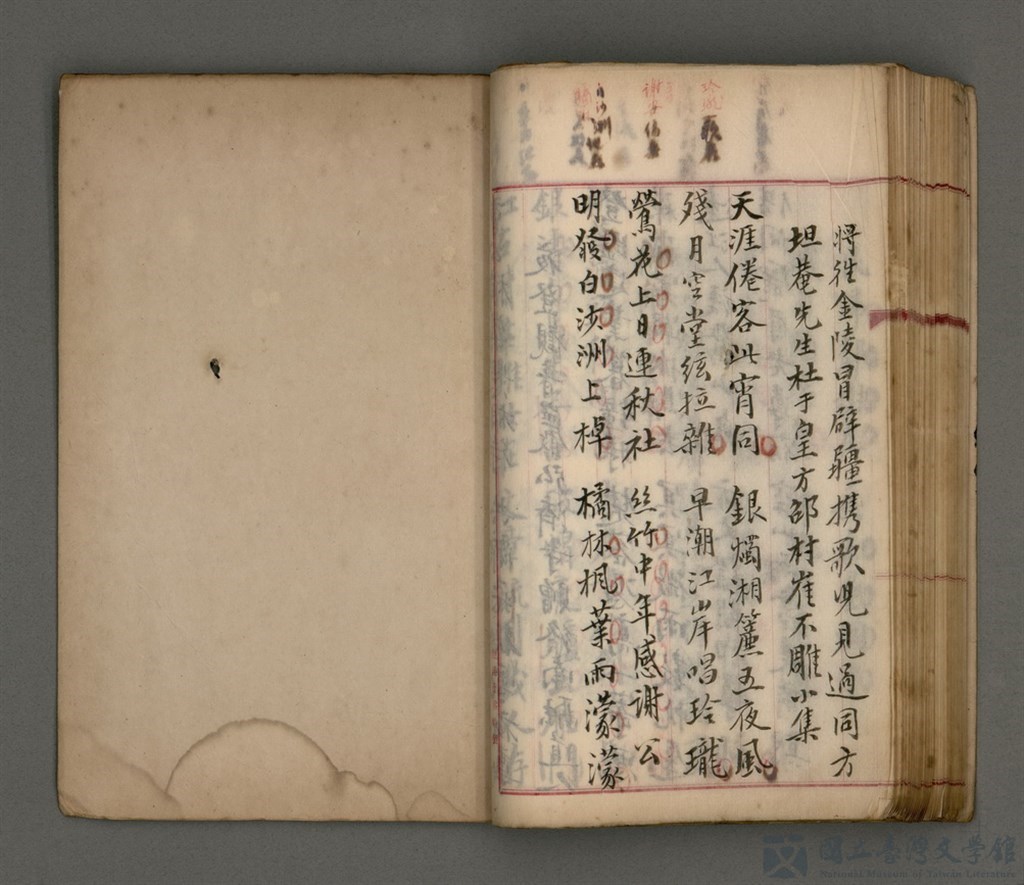 將往金陵冒辟疆携歌児見過同方
坦菴先生杜于皇方邵村崔不雕小集
天涯倦客此宵同　銀燭湘簾五夜風
殘月空堂絃拉雜　早潮江岸唱玲瓏
鶯花上日連秋社　絲竹中年感謝公
明發白沙洲上棹　橘林枫葉雨濛濛
玲瓏
謝公
國立臺灣文學館
National Museum of Taiwan Literature